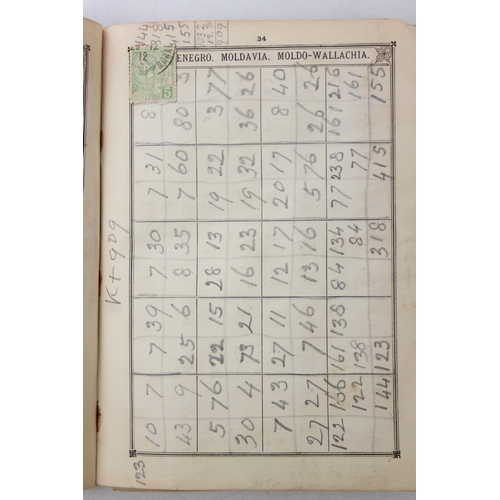 34
ENEGRO. MOLDAVIA. MOLDO-WALLACHIA.
144
318
415
155
1032
123
909
12
5
K+909
123
10 7 7 39 7 30 7 31 8
43 9 25 6 8 35 7 60 80
5 76 22 15 28 13 19 22 3 77
30 4 73 21 16 23 19 32 36 26
7 43 27 11 12 17 20 17 8 40
27 27 7 46 13 16 5 76 26 26
122 166 161 138 84 134 77 238 161 216
122 138 84 77 161
144 123 318 415 155